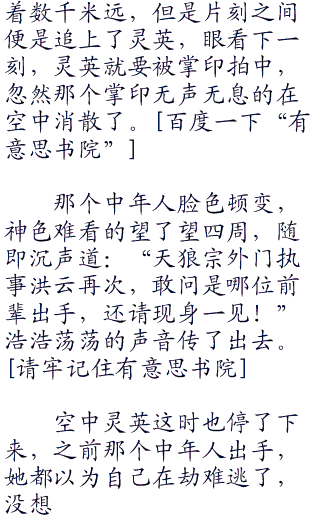 着数千米远，但是片刻之间
便是追上了灵英，眼看下一
刻，灵英就要被掌印拍中，
忽然那个掌印无声无息的在
空中消散了。[百度一下“有
意思书院”]
那个中年人脸色顿变，
神色难看的望了望四周，随
即沉声道：“天狼宗外门执
事洪云再次，敢问是哪位前
辈出手，还请现身一见！”
浩浩荡荡的声音传了出去。
[请牢记住有意思书院]
空中灵英这时也停了下
来，之前那个中年人出手，
她都以为自己在劫难逃了，
没想